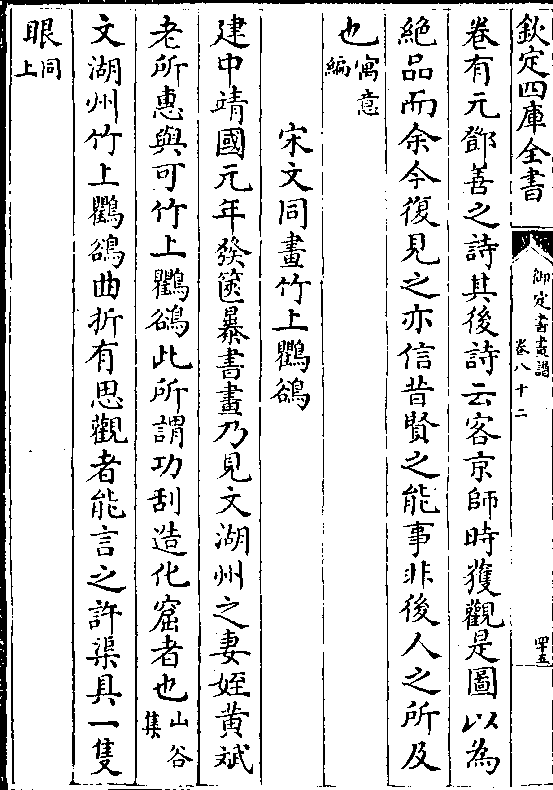 欽定四庫全書
御定書畫譜
卷八十二
四十五
卷有元鄧善之詩其後詩云客京師時獲觀是圖以為
絕品而余今復見之亦信昔賢之能事非後人之所及
也寓意編
宋文同畫竹上鸜鵒
建中靖國元年發篋暴書畫乃見文湖州之妻姪黃斌
老所惠與可竹上鸜鵒此所謂功刮造化窟者也山谷集
文湖州竹上鸜鵒曲折有思觀者能言之許渠具一隻
眼同上